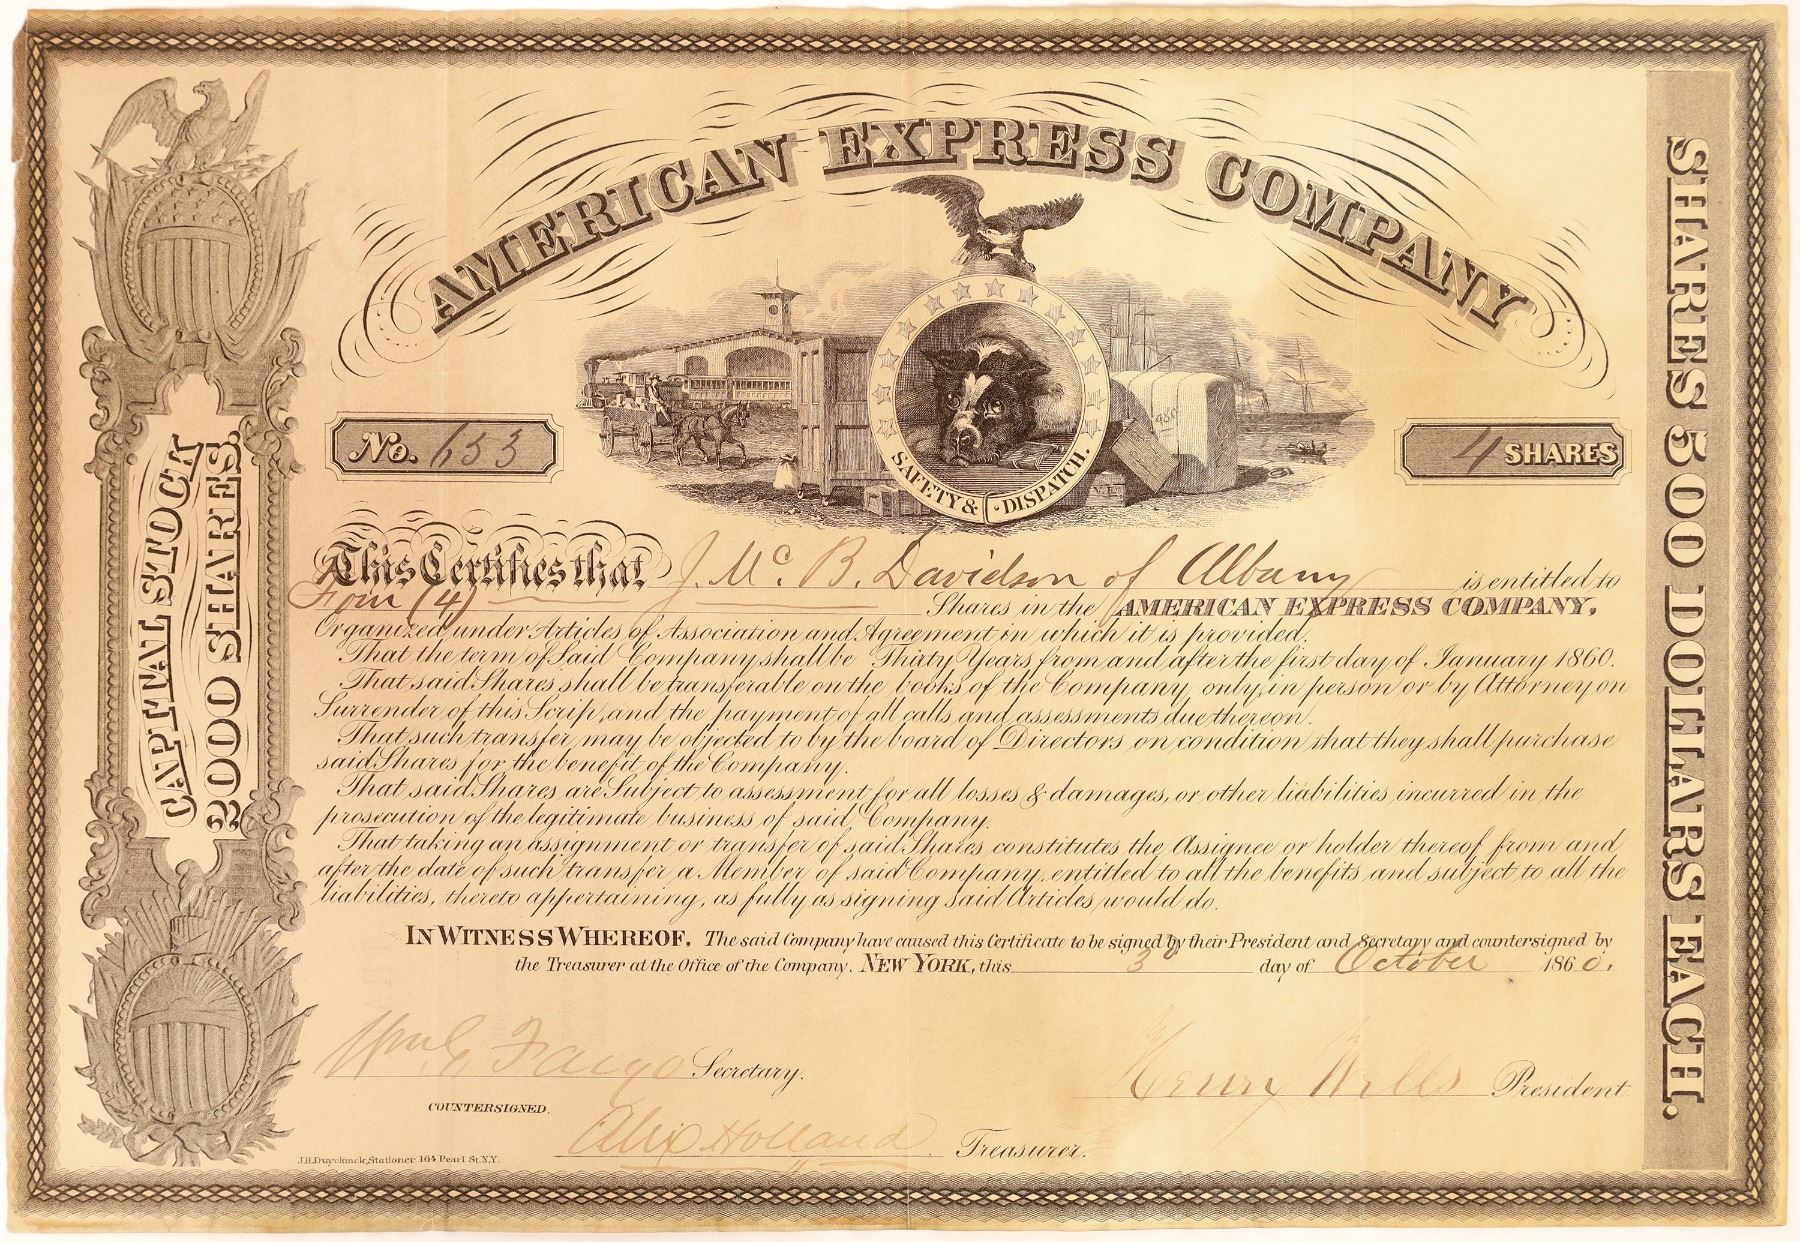 AMERICAN EXPRESS COMPANY
SAFETY & DISPATCH.
No. 653
4 SHARES
CAPITAL STOCK
2000 SHARES.
SHARES 500 DOLLARS EACH.
This Certifies that J. Mc. B. Davidson of Albany is entitled to
Four (4) Shares in the AMERICAN EXPRESS COMPANY,
Organized under Articles of Association and Agreement in which it is provided.
That the term of Said Company shall be Thirty Years from and after the first day of January 1860.
That said Shares shall be transferable on the books of the Company, only, in person or by Attorney on
Surrender of this Scrip, and the payment of all calls and assessments due thereon.
That such transfer may be objected to by the board of Directors, on condition that they shall purchase
said Shares for the benefit of the Company.
That said Shares are Subject to assessment for all losses & damages, or other liabilities incurred in the
prosecution of the legitimate business of said Company.
That taking an assignment or transfer of said Shares constitutes the Assignee or holder thereof from and
after the date of such transfer a Member of said Company, entitled to all the benefits and subject to all the
liabilities, thereto appertaining, as fully as signing said Articles would do.
IN WITNESS WHEREOF, The said Company have caused this Certificate to be signed by their President and Secretary and countersigned by
the Treasurer at the Office of the Company. NEW YORK, this 3 day of October 1860.
Wm G Fargo Secretary.
Henry Wells President
COUNTERSIGNED.
Alex Holland Treasurer.
J.H. Duyckinck, Stationer 164 Pearl St. N.Y.